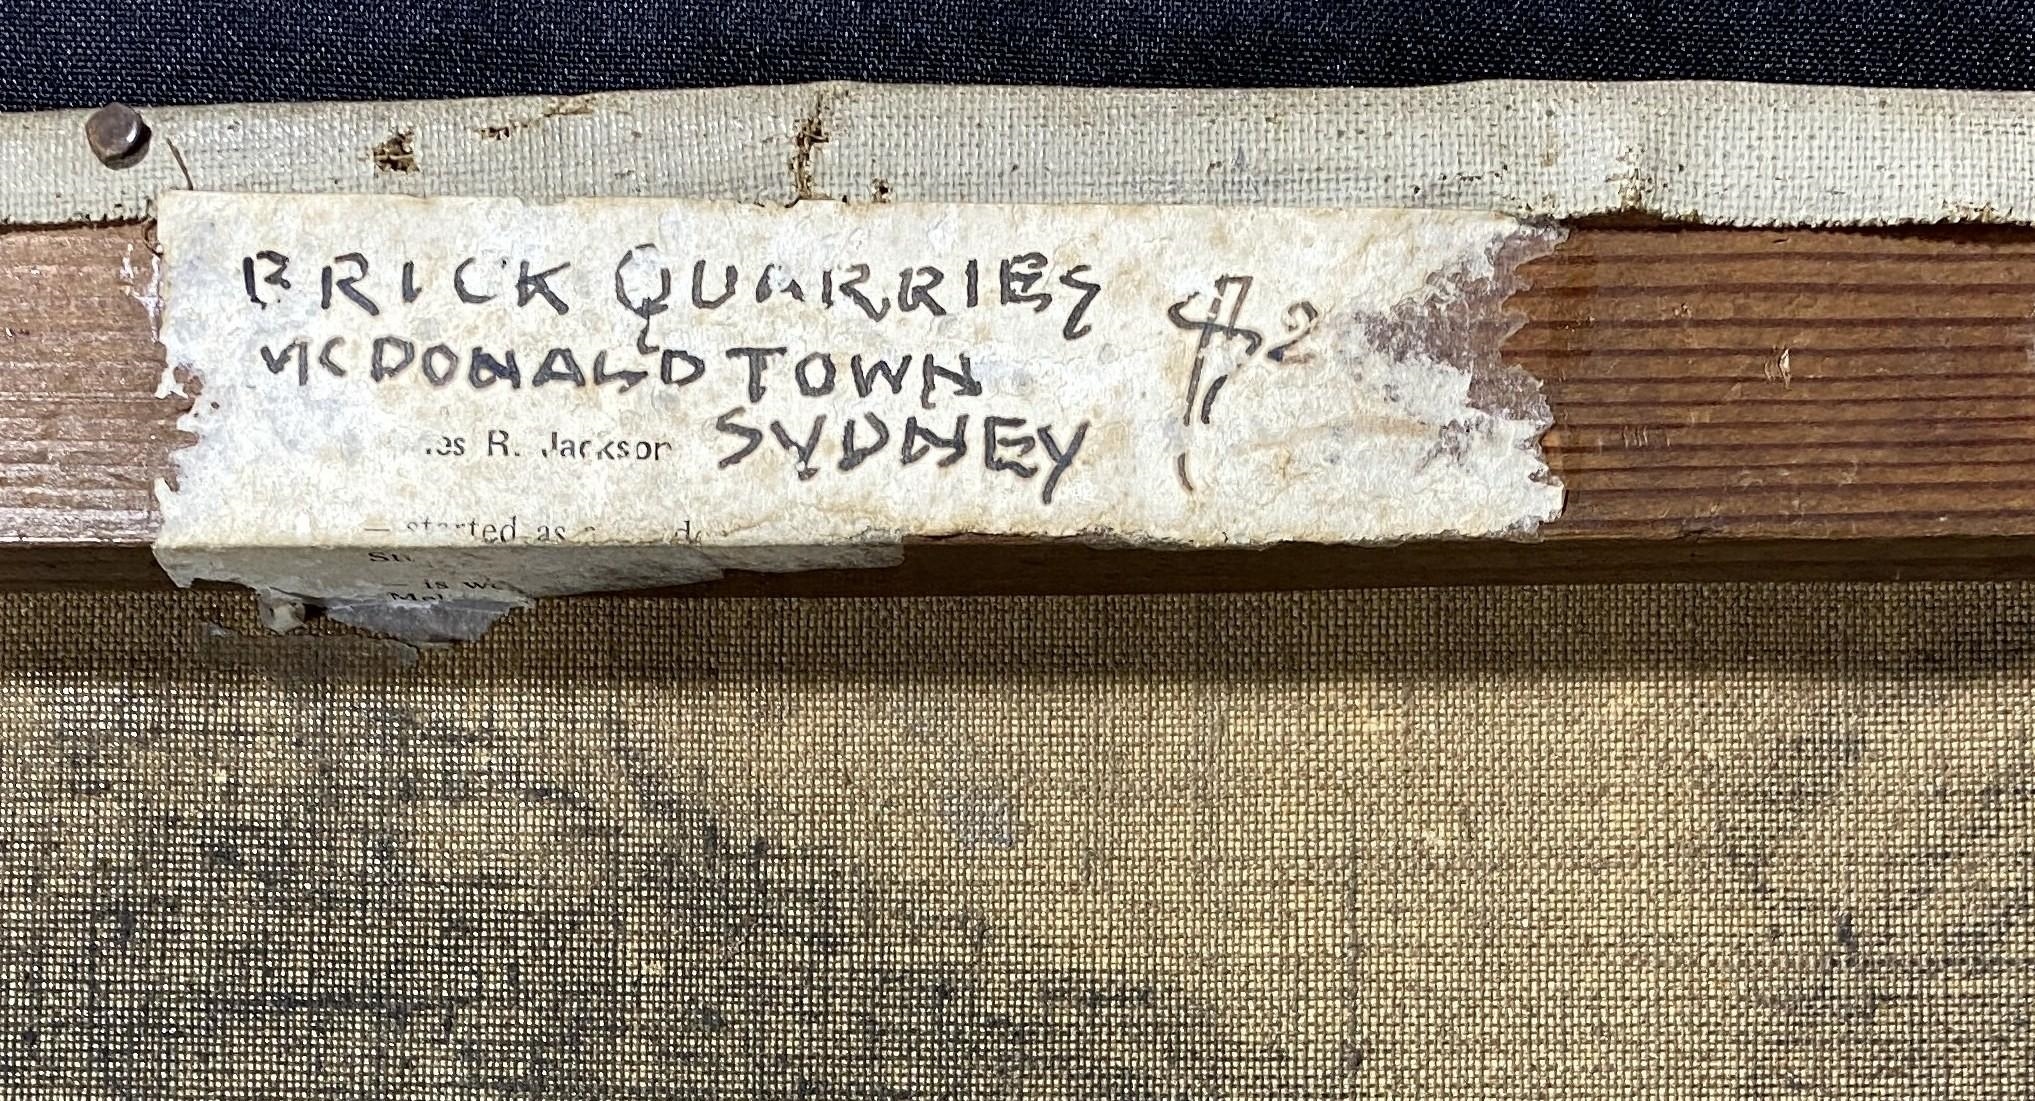 BRICK QUARRIES
MCDONALDTOWN
SYDNEY
es R. Jackson
— started as
— is